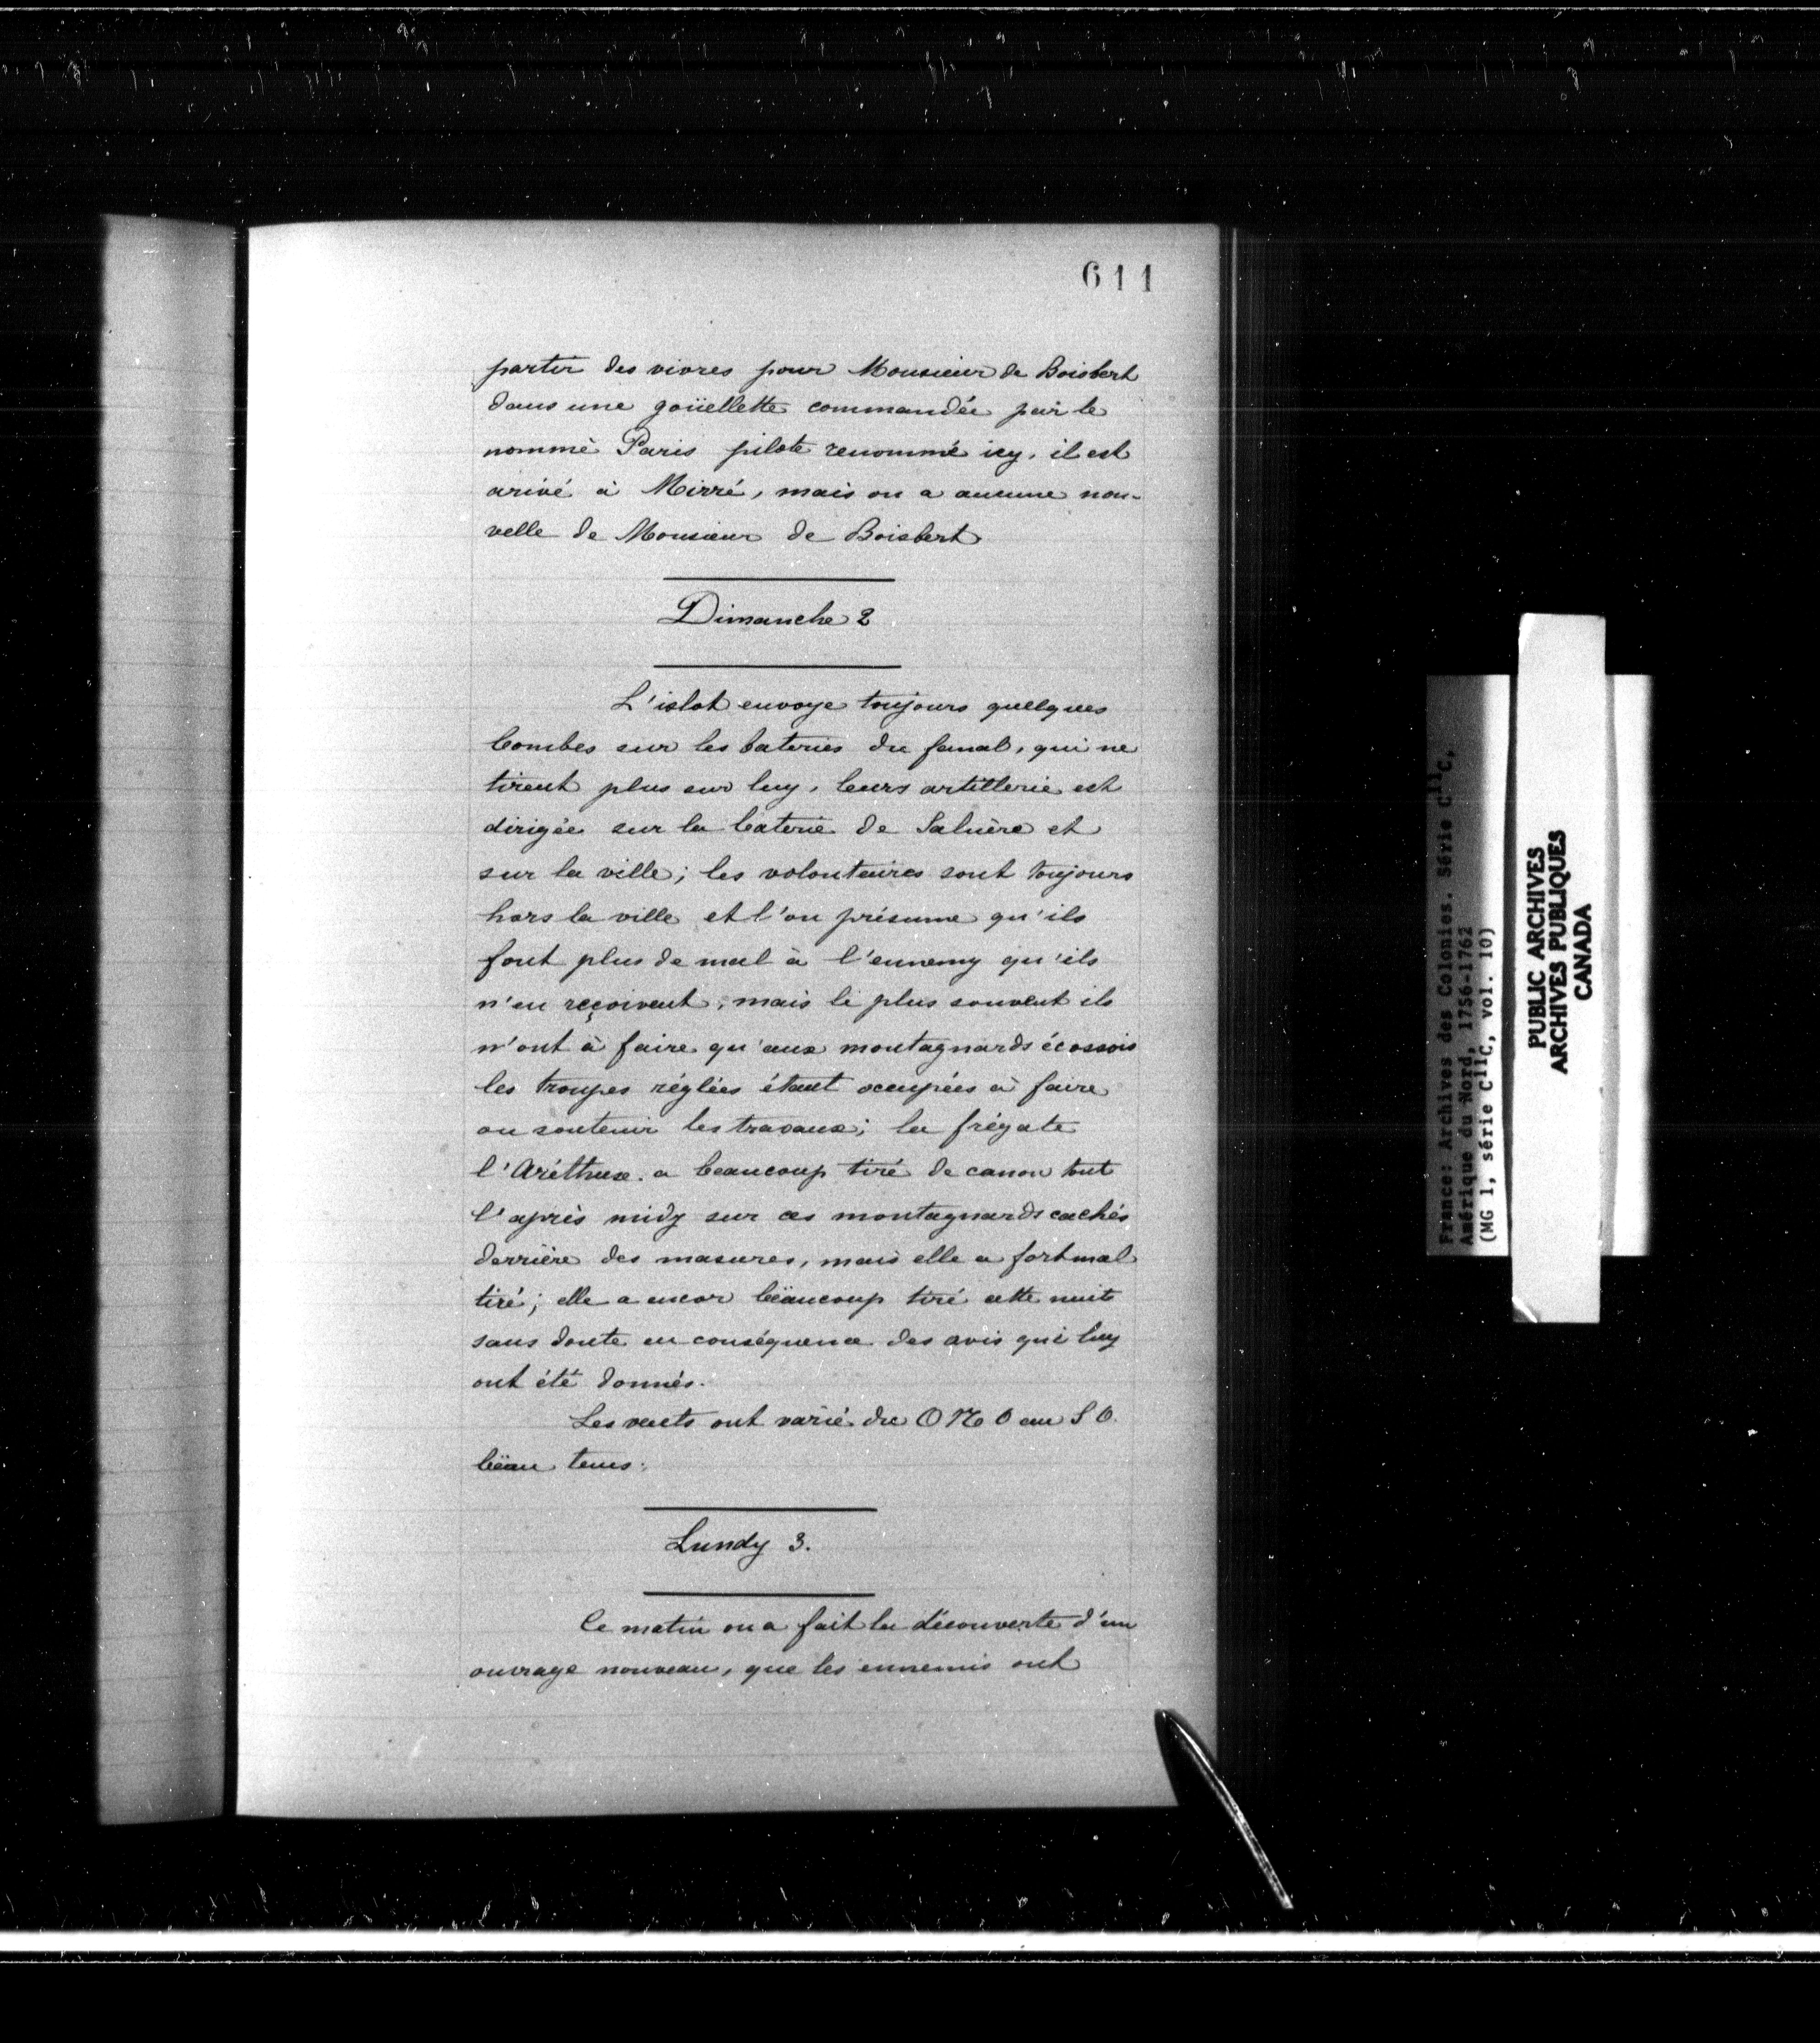 611
partir des vivres pour Monsieur de Boisbert
dans une goüellette commandée par le
nommé Paris pilote renommé icy, il est
arivé à Mirré, mais on a aucune nou-
velle de Monsieur de Boisbert
Dimanche 2
L'islot envoye toujours quelques
bombes sur les bateries du fanal, qui ne
tirent plus sur luy, leurs artillerie est
dirigée sur la baterie de Salière et
sur la ville; les volontaires sont toujours
hors la ville et l'on présume qu'ils
font plus de mal à l'ennemy qu'ils
n'en reçoivent, mais le plus souvent ils
n'ont à faire qu'aux montagnards écossois
les troupes réglées étant occupées à faire
ou soutenir les travaux; la frégate
l'Aréthuse a beaucoup tiré de canon tout
l'après midy sur ces montagnards cachés
derrière des masures, mais elle a fort mal
tiré; elle a encor bëaucoup tiré cette nuit
sans doute en conséquence des avis qui luy
ont été donnés.
Les vents ont varié du O N O au S O.
bëau tems.
Lundy 3.
Ce matin on a fait la découverte d'un
ouvrage nouveau, que les ennemis ont
France: Archives des Colonies. Série C11C,
Amérique du Nord, 1756-1762
(MG 1, série C11C, vol. 10)
PUBLIC ARCHIVES
ARCHIVES PUBLIQUES
CANADA